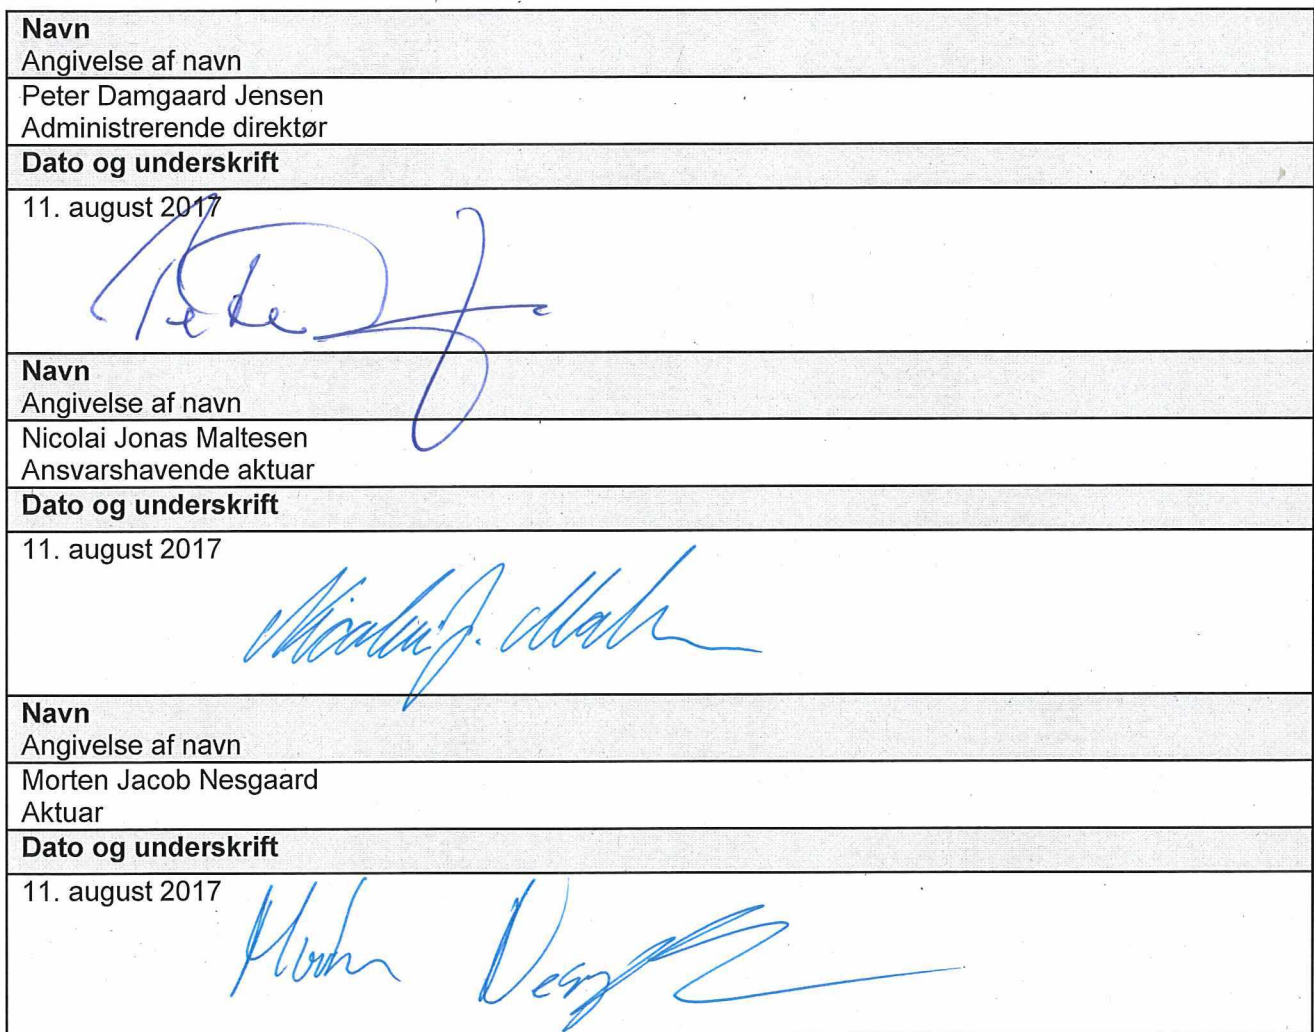 Navn
Angivelse af navn
Peter Damgaard Jensen
Administrerende direktør
Dato og underskrift
11. august 2017
Navn
Angivelse af navn
Nicolai Jonas Maltesen
Ansvarshavende aktuar
Dato og underskrift
11. august 2017
Navn
Angivelse af navn
Morten Jacob Nesgaard
Aktuar
Dato og underskrift
11. august 2017